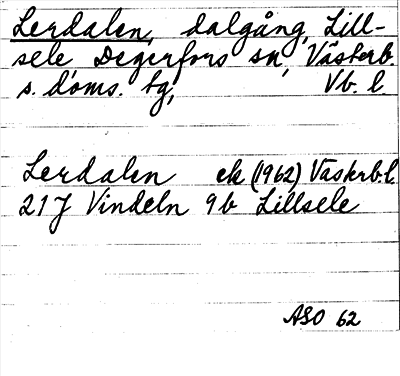 Lerdalen, dalgång, Lill-
sele Degerfors sn, Västerb.
s. doms. tg, Vb. l.
Lerdalen ek (1962) Västerb. l.
21J Vindeln 9b Lillsele
ASO 62